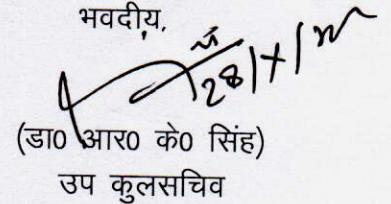 भवदीय,
(डा0 आर0 के0 सिंह)
उप कुलसचिव